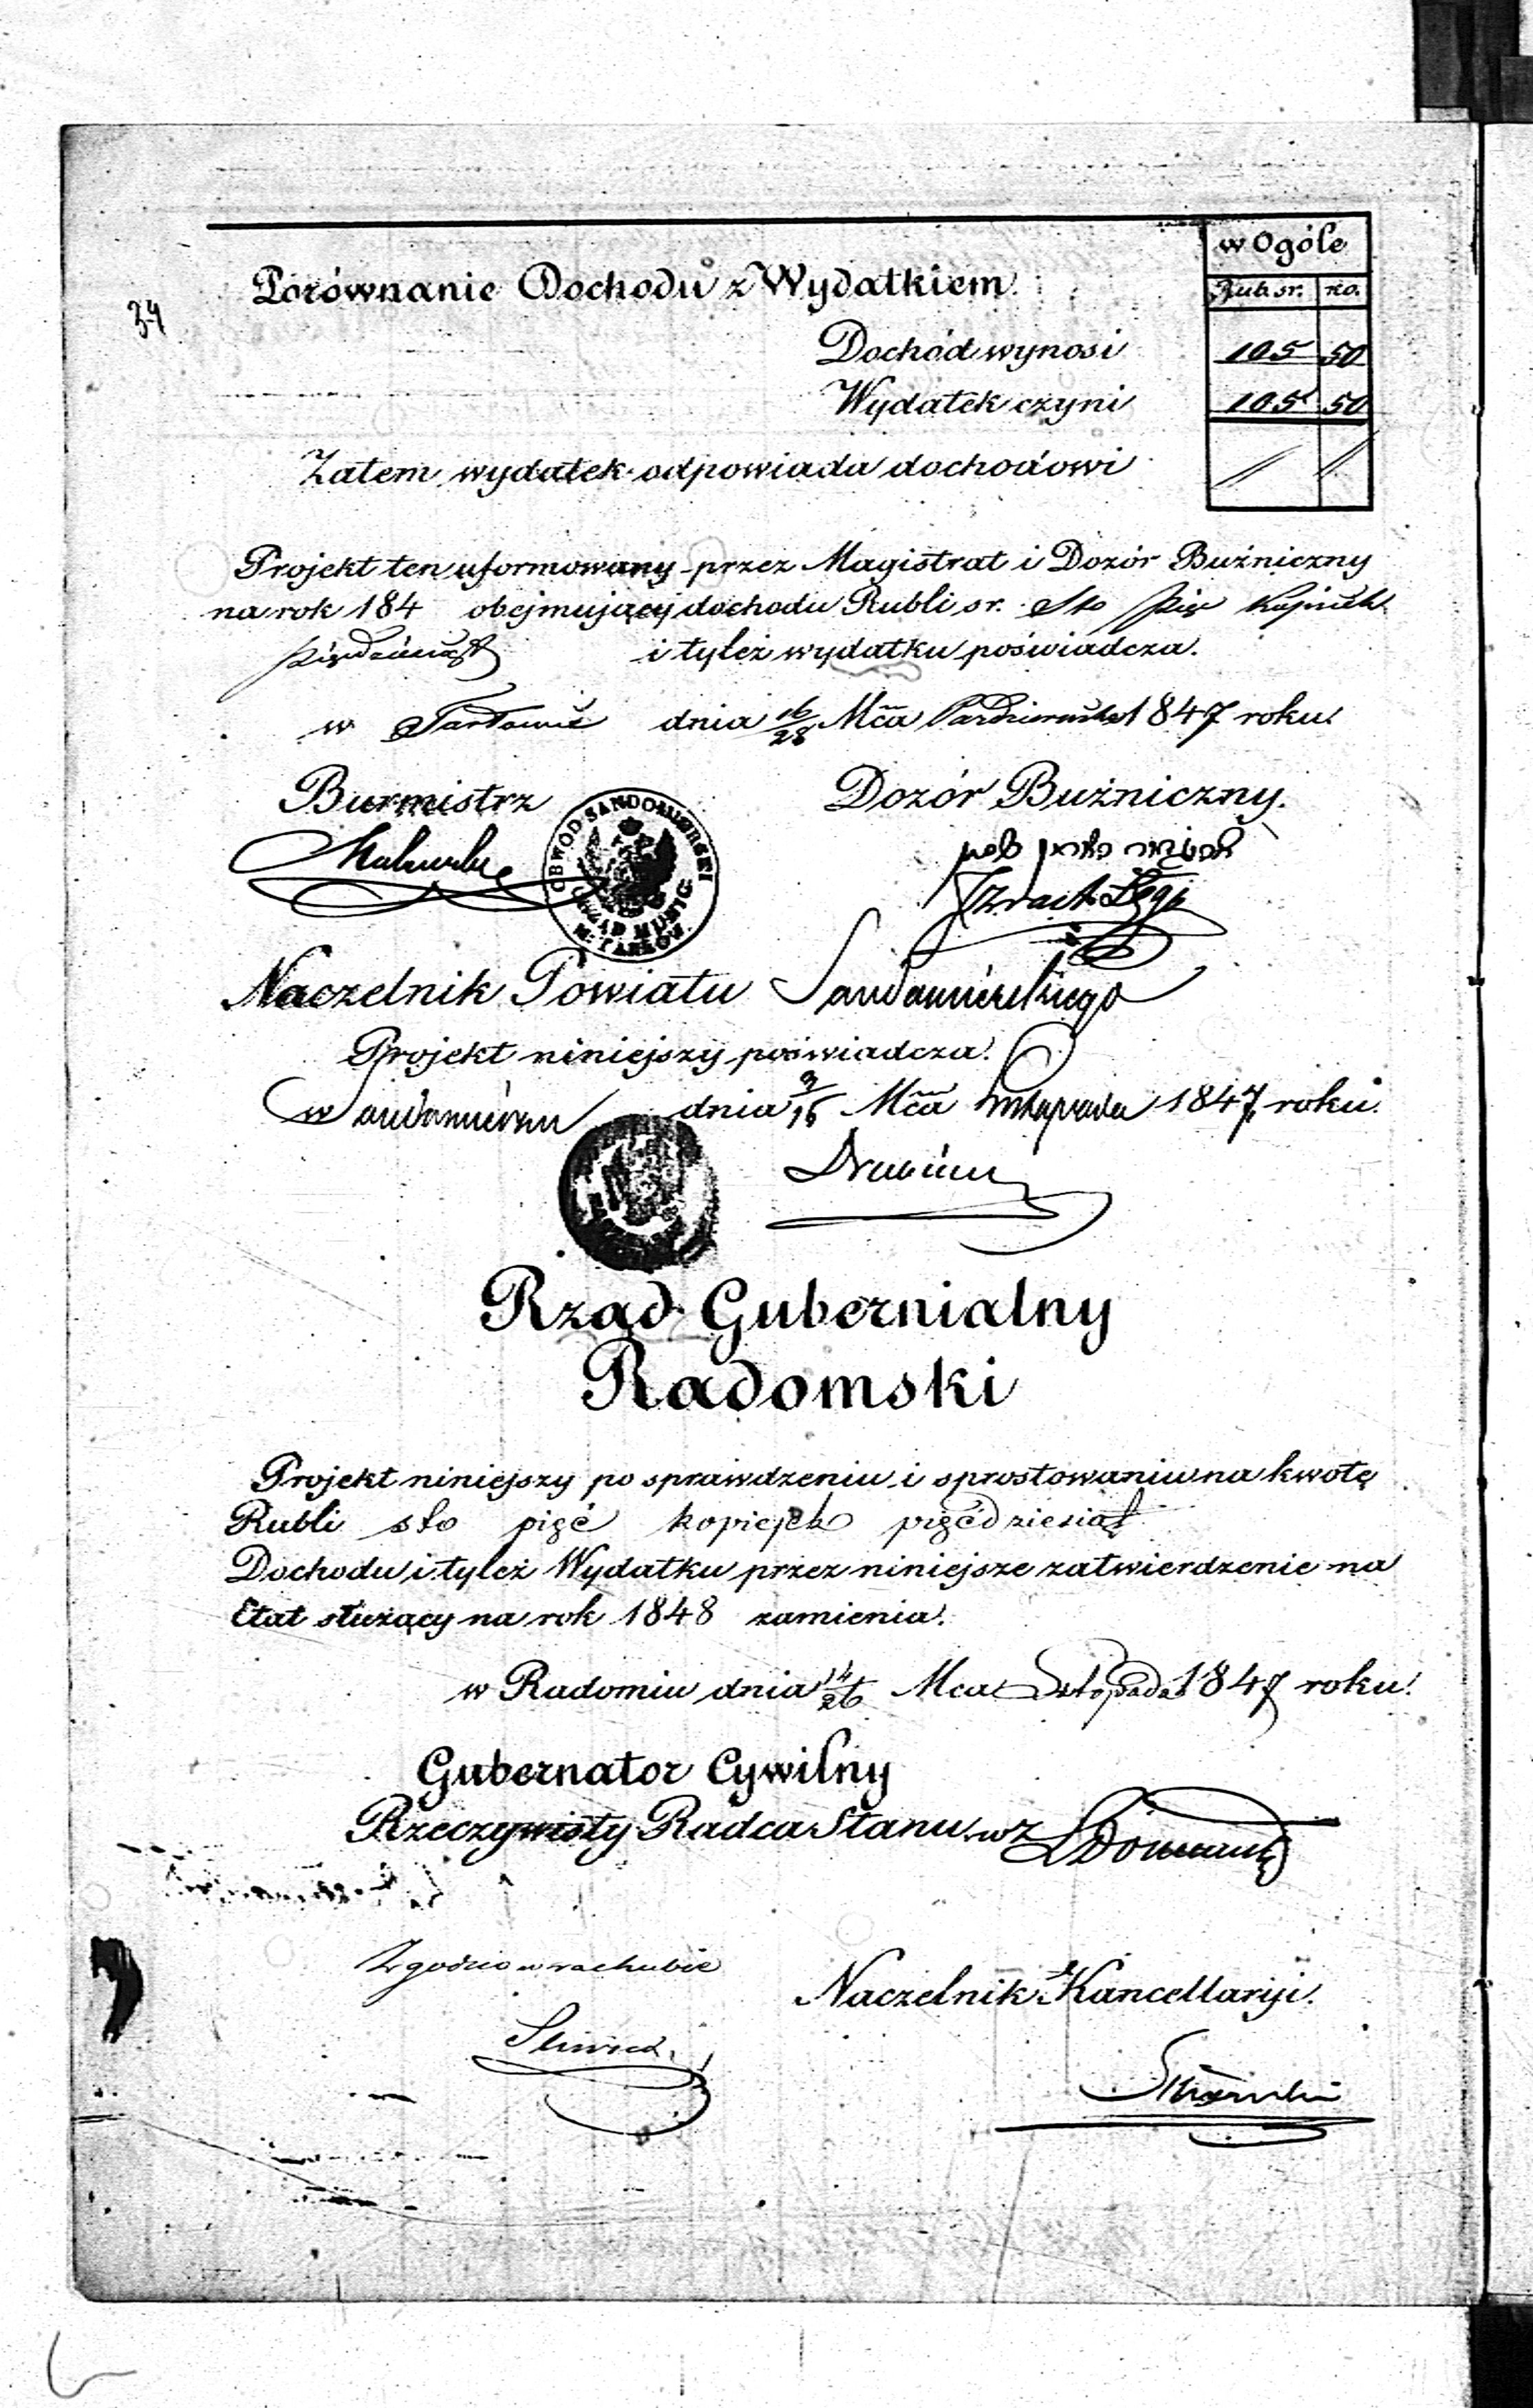 34
w Ogóle
Rub. sr. ko.
Porównanie Dochodu z Wydatkiem
Dochód wynosi 105 50
Wydatek czyni 105 50
Zatem wydatek odpowiada dochodowi
Projekt ten uformowany przez Magistrat i Dozór Bużniczny
na rok 184 obejmujący dochodu Rubli sr. Sto pięć kopiejek
pięćdziesiąt i tyleż wydatku poświadcza.
w Tarłowie dnia 16/28 Mca Października 1847 roku.
Burmistrz Dozór Bużniczny.
OBWOD SANDOMIERSKI
URZĄD MUNIC. M. TARŁÓW.
Naczelnik Powiatu Sandomierskiego
Projekt niniejszy poświadcza.
w Sandomierzu dnia 3/15 Mca Listopada 1847 roku.
Rząd Gubernialny
Radomski
Projekt niniejszy po sprawdzeniu i sprostowaniu na kwotę
Rubli sto pięć kopiejek pięćdziesiąt
Dochodu i tyleż Wydatku przez niniejsze zatwierdzenie na
Etat służący na rok 1848 zamienia.
w Radomiu dnia 14/26 Mca Listopada 1847 roku.
Gubernator Cywilny
Rzeczywisty Radca Stanu wz
Zgodno w rachubie
Naczelnik Kancellaryi.